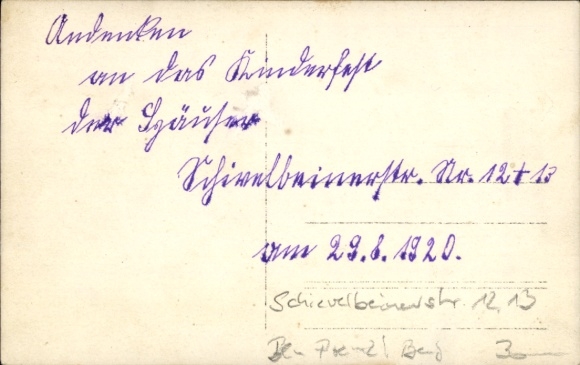 Andenken
an das Kinderfest
der Häuser
Schivelbeinerstr. Nr. 12 + 13
am 29.8.1920.
Schievelbeinerstr. 12, 13
Bln Prenzl Berg 3